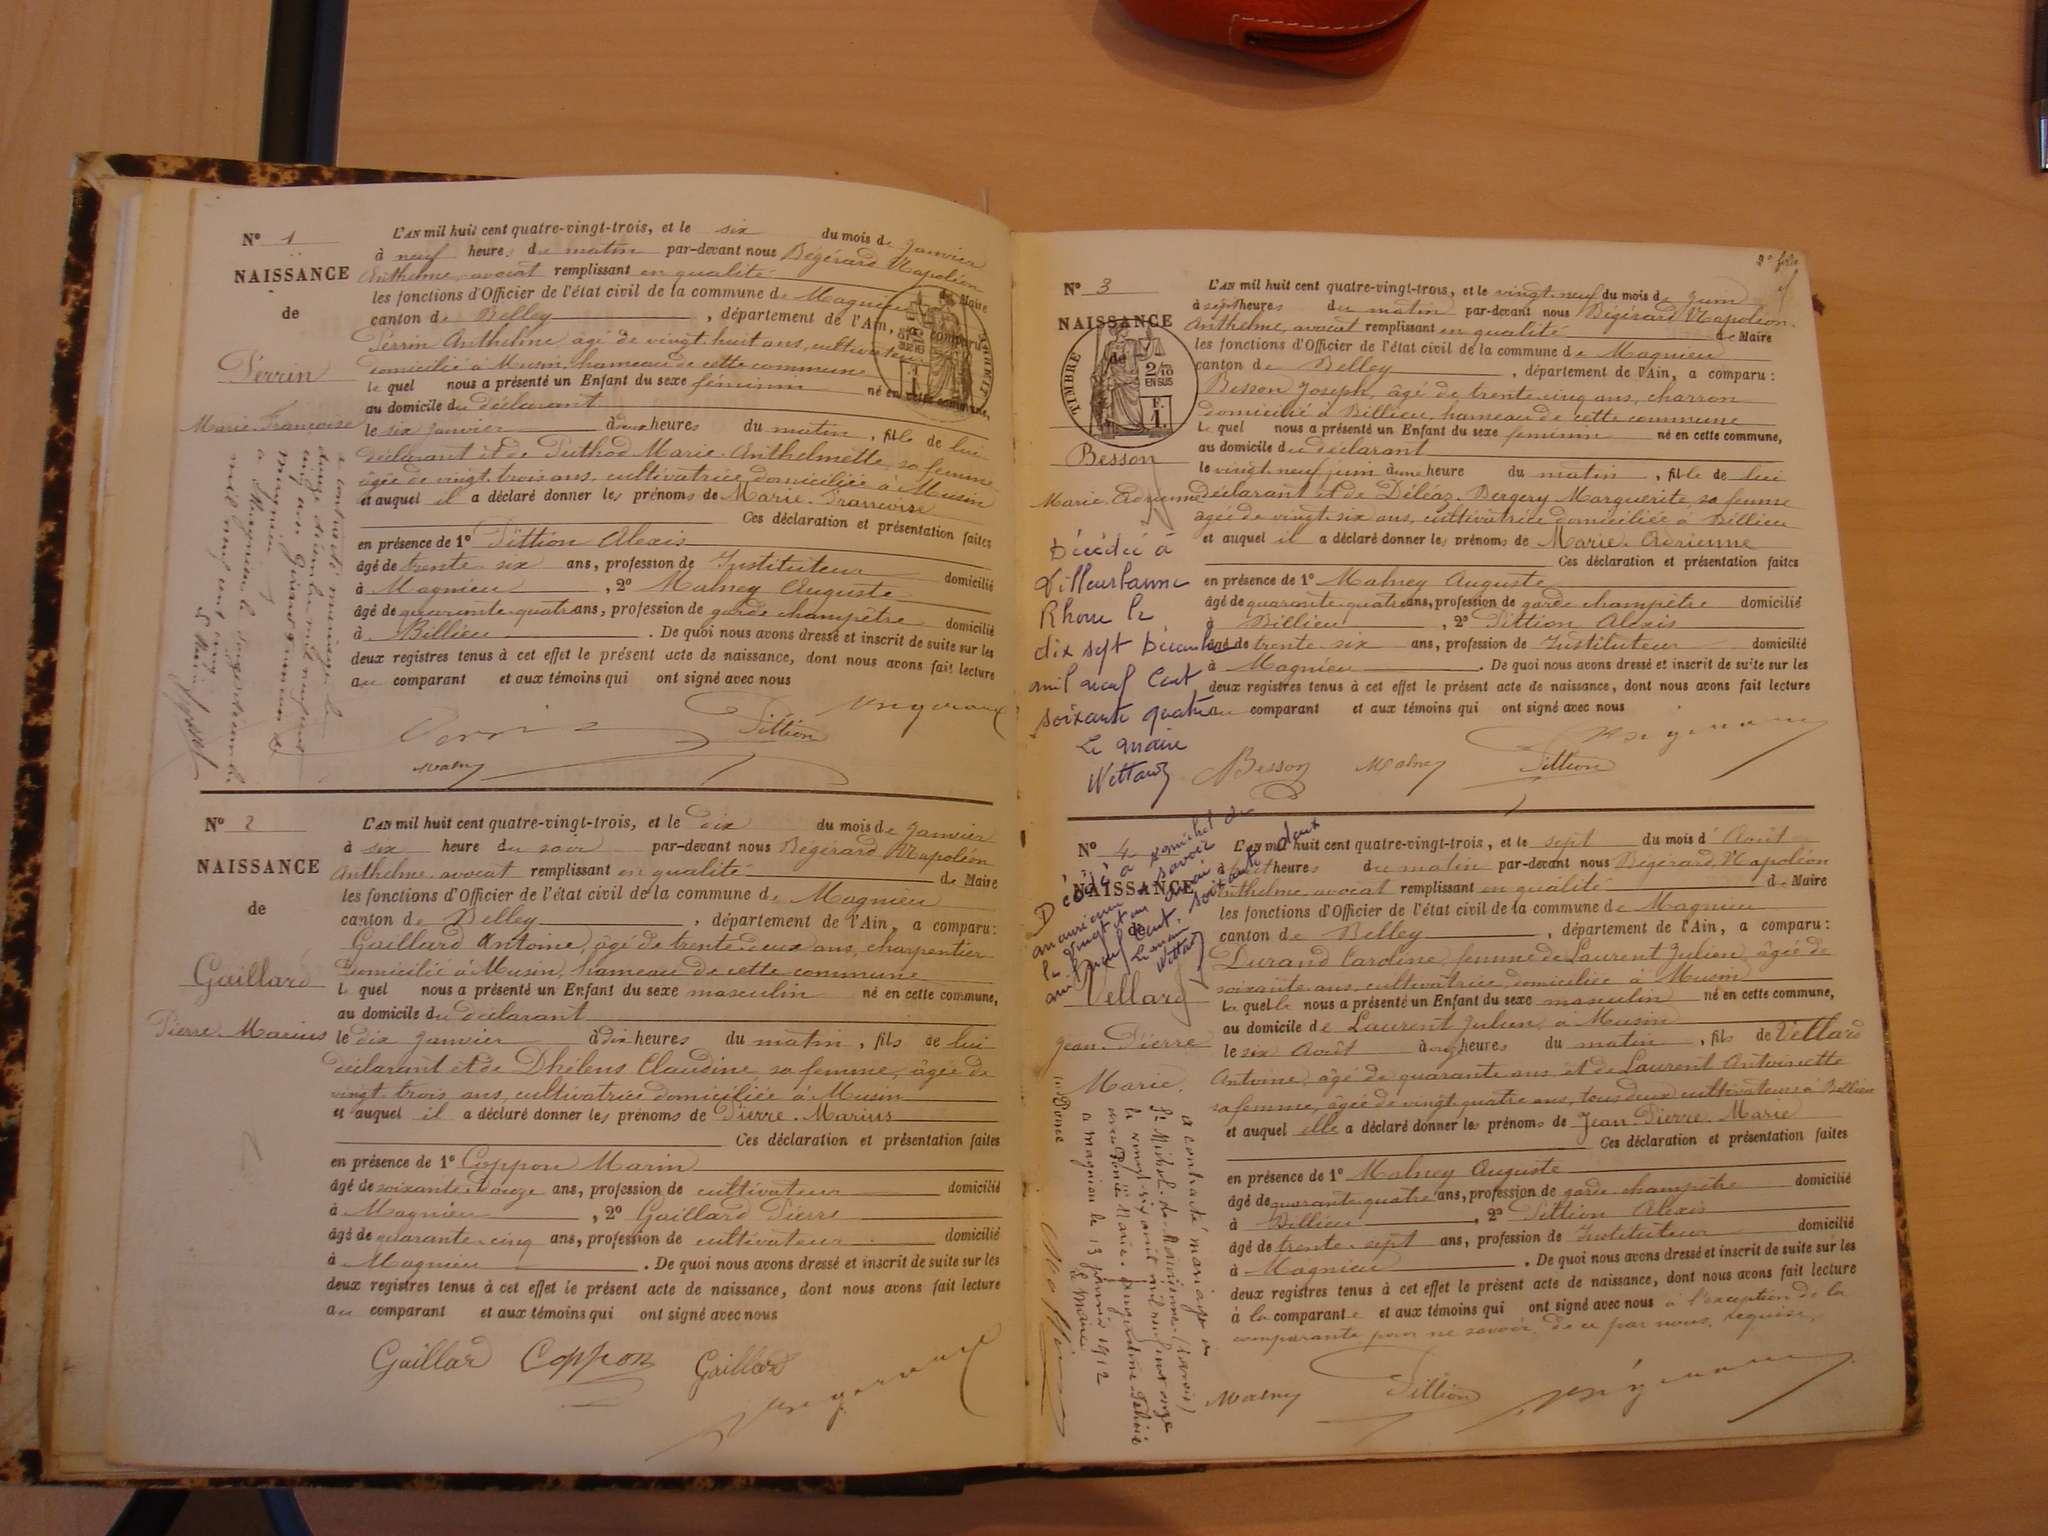 Nº 1
NAISSANCE
de
Perrin
Marie Françoise
L'AN mil huit cent quatre-vingt-trois, et le six du mois de janvier
à neuf heures du matin par-devant nous Bégérard Napoléon
Anthelme, avocat remplissant en qualité de Maire
les fonctions d'Officier de l'état civil de la commune de Magnieu
canton de Belley, département de l'Ain, a comparu
Perrin Anthelme, âgé de vingt huit ans, cultivateur
domicilié à Musin, hameau de cette commune
le quel nous a présenté un Enfant du sexe féminin né en cette commune,
au domicile du déclarant
le six janvier à heures du matin, fille de lui
déclarant et de Puthod Marie Anthelmette, sa femme
âgée de vingt trois ans, cultivatrice domiciliée à Musin
et auquel il a déclaré donner les prénoms de Marie Françoise
Ces déclaration et présentation faites
en présence de 1º Pittion Alexis
âgé de trente six ans, profession de Instituteur domicilié
à Magnieu, 2º Malney Auguste
âgé de quarante quatre ans, profession de garde champêtre domicilié
à Billieu. De quoi nous avons dressé et inscrit de suite sur les
deux registres tenus à cet effet le présent acte de naissance, dont nous avons fait lecture
au comparant et aux témoins qui ont signé avec nous
Perrin Pittion
Malney
Nº 2
NAISSANCE
de
Gaillard
Pierre Marius
L'AN mil huit cent quatre-vingt-trois, et le dix du mois de janvier
à six heure du soir par-devant nous Bégérard Napoléon
Anthelme, avocat remplissant en qualité de Maire
les fonctions d'Officier de l'état civil de la commune de Magnieu
canton de Belley, département de l'Ain, a comparu:
Gaillard Antoine, âgé de trente deux ans, charpentier
domicilié à Musin, hameau de cette commune
le quel nous a présenté un Enfant du sexe masculin né en cette commune,
au domicile du déclarant
le dix janvier à dix heures du matin, fils de lui
déclarant et de Dhélens Claudine, sa femme, âgée de
vingt trois ans, cultivatrice domiciliée à Musin
et auquel il a déclaré donner les prénoms de Pierre Marius
Ces déclaration et présentation faites
en présence de 1º Coppon Marin
âgé de soixante et onze ans, profession de cultivateur domicilié
à Magnieu, 2º Gaillard Pierre
âgé de quarante cinq ans, profession de cultivateur domicilié
à Magnieu. De quoi nous avons dressé et inscrit de suite sur les
deux registres tenus à cet effet le présent acte de naissance, dont nous avons fait lecture
au comparant et aux témoins qui ont signé avec nous
Gaillard Coppon Gaillard
2e
Nº 3
NAISSANCE
de
TIMBRE
2/10
EN SUS
F.
1.
Besson
Marie Adrienne
Décédée à
Villeurbanne
Rhône le
dix sept Décembre
mil neuf Cent
soixante quatre
Le maire
L'AN mil huit cent quatre-vingt-trois, et le vingt neuf du mois de juin
à sept heures du matin par-devant nous Bégérard Napoléon
Anthelme, avocat remplissant en qualité de Maire
les fonctions d'Officier de l'état civil de la commune de Magnieu
canton de Belley, département de l'Ain, a comparu:
Besson Joseph, âgé de trente cinq ans, charron
domicilié à Billieu, hameau de cette commune
Le quel nous a présenté un Enfant du sexe féminin né en cette commune,
au domicile du déclarant
le vingt neuf juin à une heure du matin, fille de lui
déclarant et de Déléaz Bergery Marguerite sa femme
âgée de vingt six ans, cultivatrice domiciliée à Billieu
et auquel il a déclaré donner les prénoms de Marie Adrienne
Ces déclaration et présentation faites
en présence de 1º Malney Auguste
âgé de quarante quatre ans, profession de garde champêtre domicilié
à Billieu, 2º Pittion Alexis
âgé de trente six ans, profession de Instituteur domicilié
à Magnieu. De quoi nous avons dressé et inscrit de suite sur les
deux registres tenus à cet effet le présent acte de naissance, dont nous avons fait lecture
au comparant et aux témoins qui ont signé avec nous
Besson Malney Pittion
Nº 4
NAISSANCE
de
Vellard
Jean Pierre
Marie
a contracté mariage à
St Michel de Maurienne (Savoie)
le vingt six août mil neuf cent onze
à Magnieu le 13 janvier 1912
Le Maire
L'AN mil huit cent quatre-vingt-trois, et le sept du mois d'Août
à heures du matin par-devant nous Bégérard Napoléon
Anthelme, avocat remplissant en qualité de Maire
les fonctions d'Officier de l'état civil de la commune de Magnieu
canton de Belley, département de l'Ain, a comparu:
Durand Caroline, femme de Laurent Julien, âgée de
soixante ans, cultivatrice, domiciliée à Musin
La quelle nous a présenté un Enfant du sexe masculin né en cette commune,
au domicile de Laurent Julien, à Musin
le six Août à onze heures du matin, fils de Vellard
Antoine, âgé de quarante ans et de Laurent Antoinette
sa femme, âgée de vingt quatre ans, tous deux cultivateurs à Billieu
et auquel elle a déclaré donner les prénoms de Jean Pierre Marie
Ces déclaration et présentation faites
en présence de 1º Malney Auguste
âgé de quarante quatre ans, profession de garde champêtre domicilié
à Billieu, 2º Pittion Alexis
âgé de trente sept ans, profession de Instituteur domicilié
à Magnieu. De quoi nous avons dressé et inscrit de suite sur les
deux registres tenus à cet effet le présent acte de naissance, dont nous avons fait lecture
à la comparante et aux témoins qui ont signé avec nous à l'exception de la
comparante pour ne savoir, de ce par nous requise.
Malney Pittion